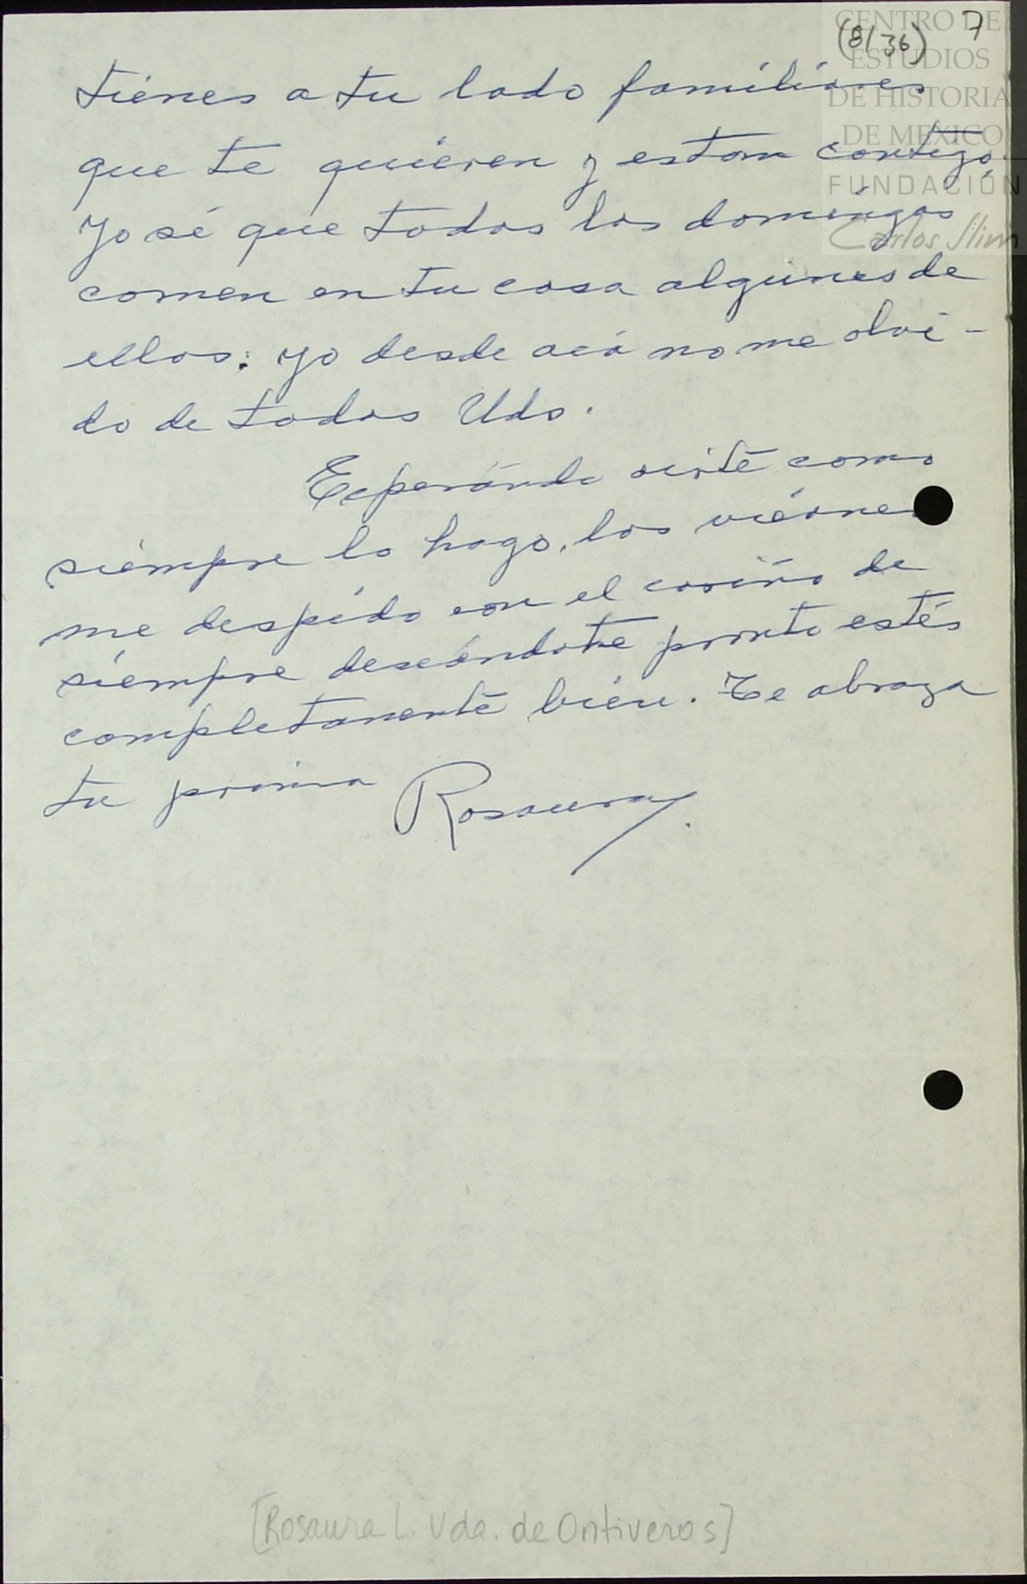 (8/36) 7
CENTRO DE
ESTUDIOS
DE HISTORIA
DE MEXICO
FUNDACIÓN
Carlos Slim
tienes a tu lado familiares
que te quieren y estan contigo.
Yo sé que todos los domingos
comen en tu casa algunos de
ellos; yo desde acá no me olvi-
do de todos Uds.
Esperando oirte como
siempre lo hago, los viernes
me despido con el cariño de
siempre deseándote pronto estés
completamente bien. Te abraza
tu prima Rosaura.
[Rosaura L. Vda. de Ontiveros]